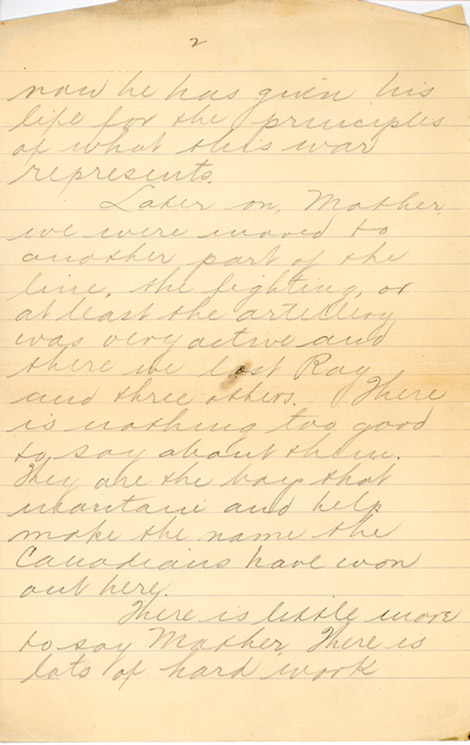 2
now he has given his
life for the principles
of what this war
represents.
Later on, Mother,
we were moved to
another part of the
line, the fighting, or
at least the artillery
was very active and
there we lost Ray
and three others. There
is nothing too good
to say about them.
They are the boys that
maintain and help
make the name the
Canadians have won
out here.
There is little more
to say Mother. There is
lots of hard work